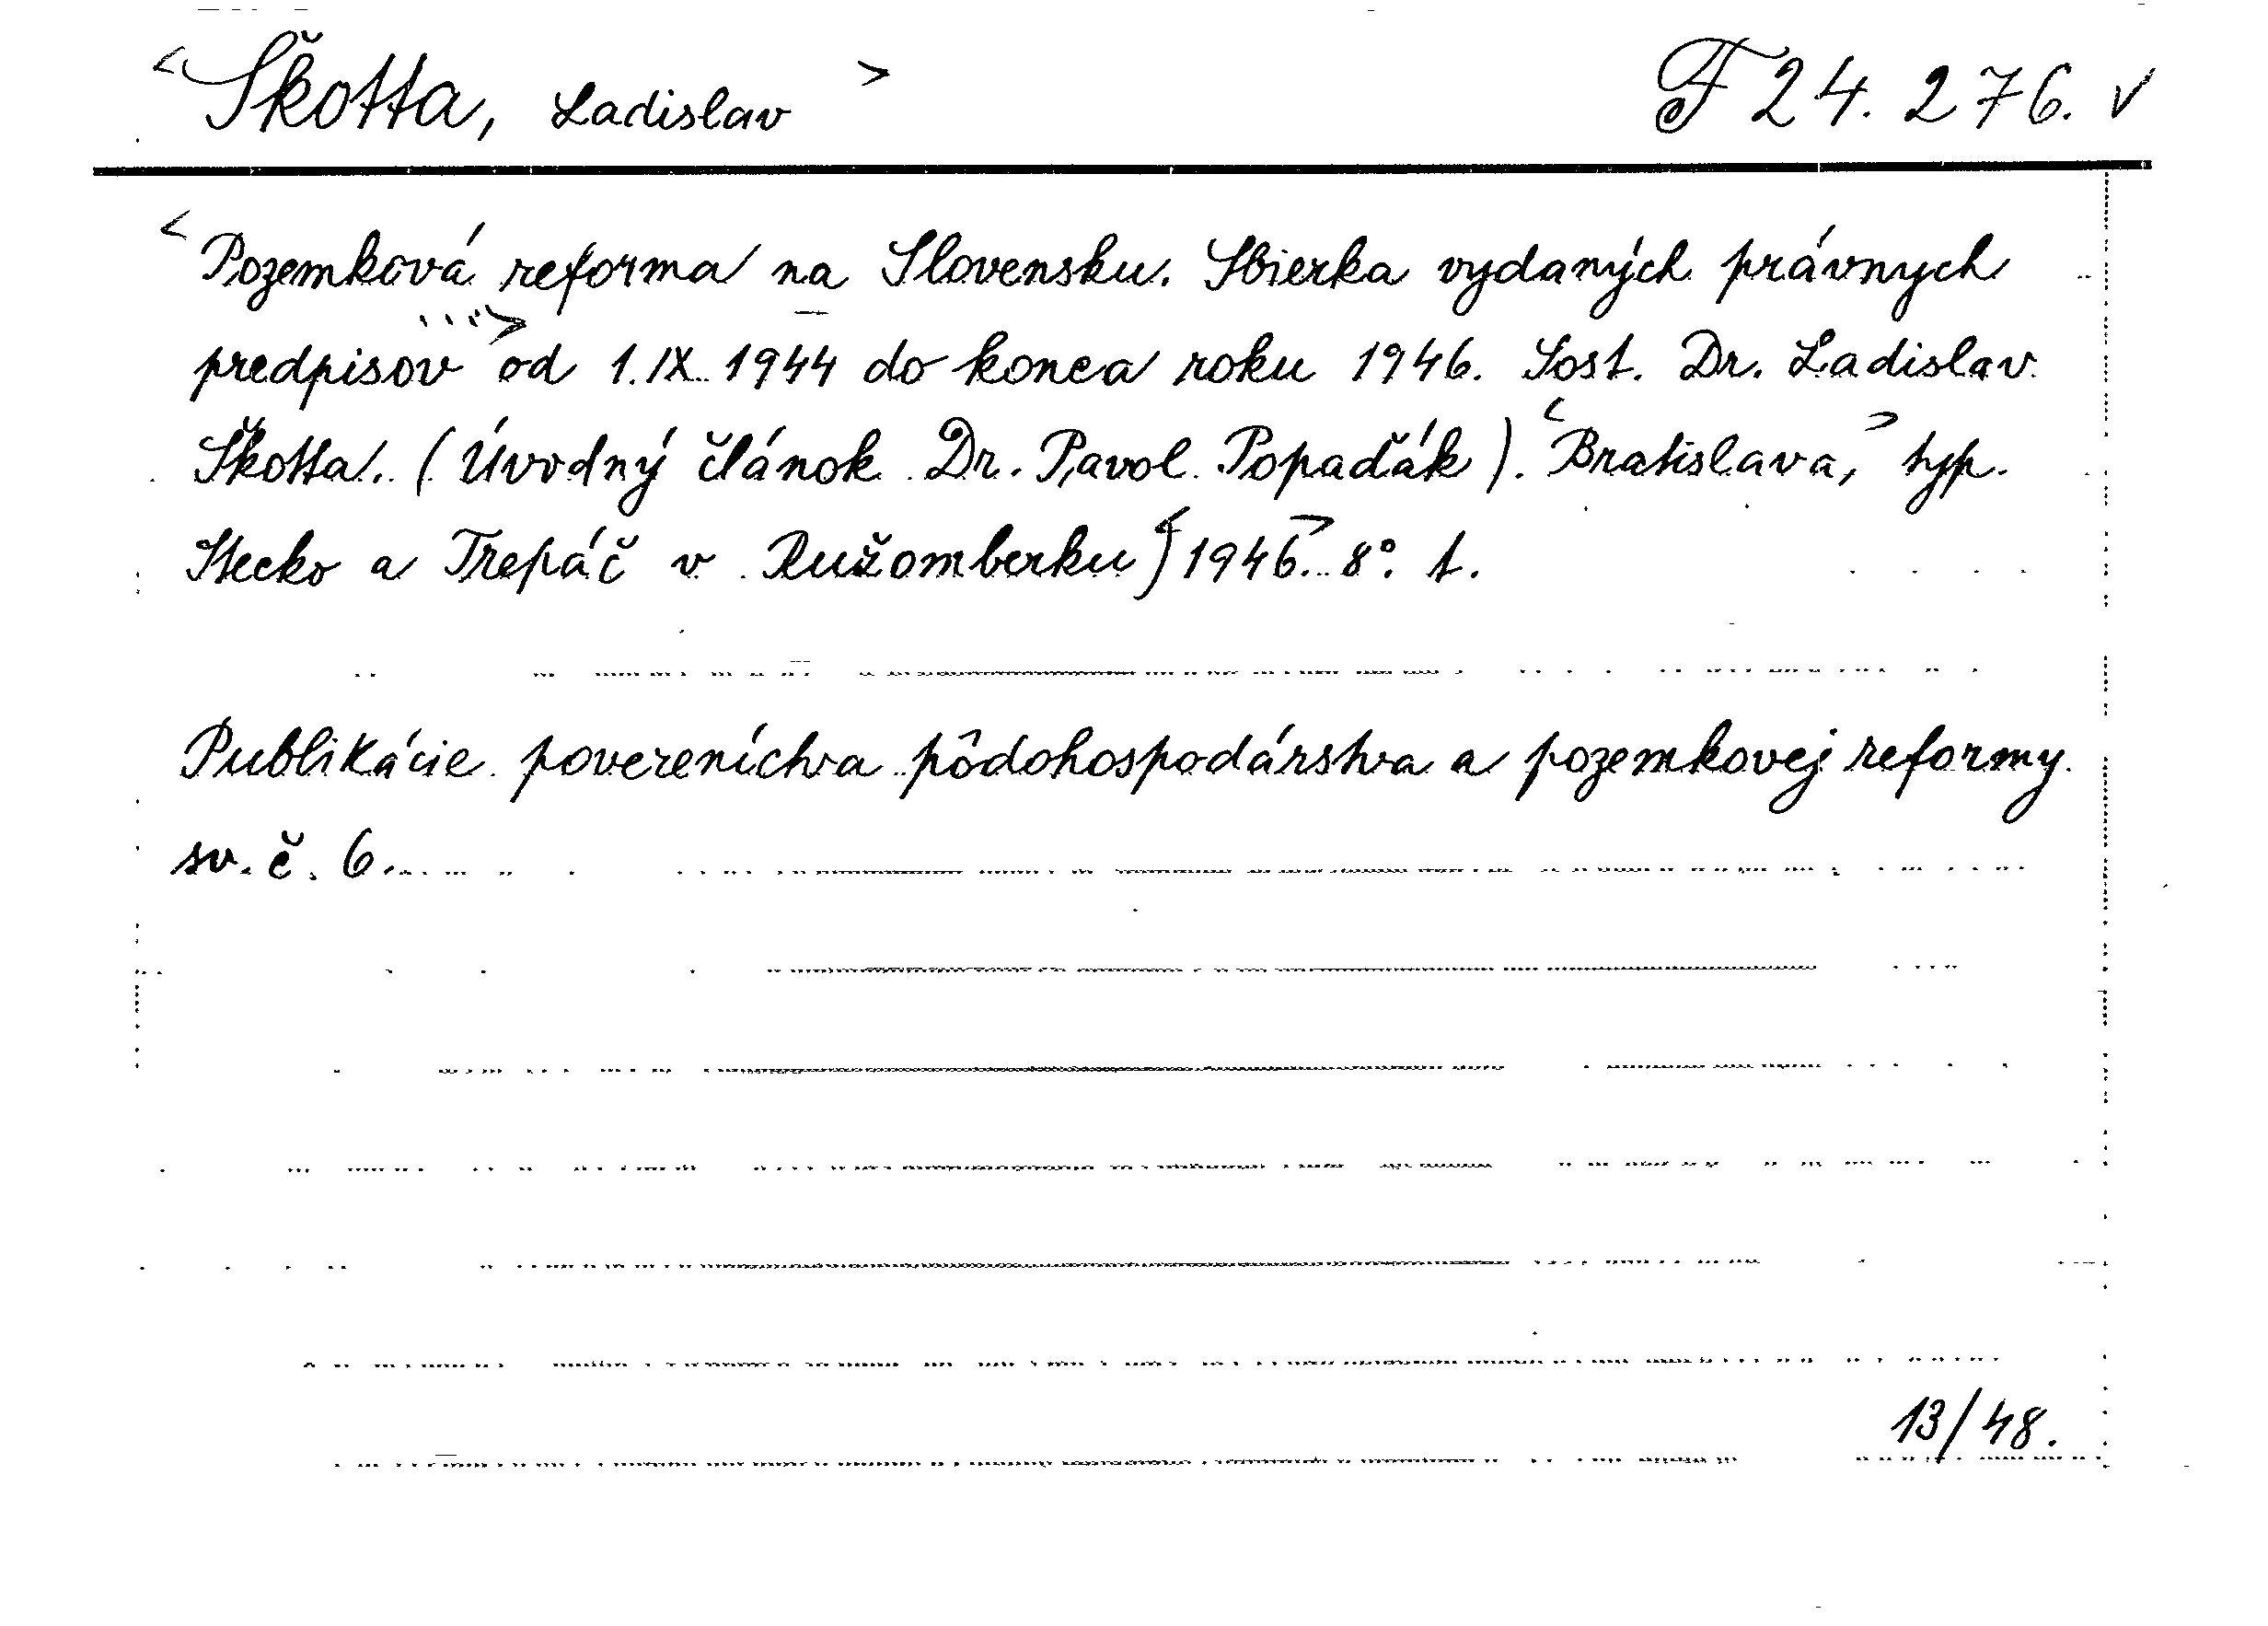 <Škotta, Ladislav> F 24.276. v
<Pozemková reforma na Slovensku. Sbierka vydaných právnych
predpisov...> od 1.IX. 1944 do konca roku 1946. Sost. Dr. Ladislav
Škotta. (Úvodný článok Dr. Pavol Popaďák). <Bratislava,> typ.
Stecko a Trepáč v Ružomberku] <1946.> 8°. 1.
Publikácie povereníctva pôdohospodárstva a pozemkovej reformy.
sv. č. 6.
13/48.